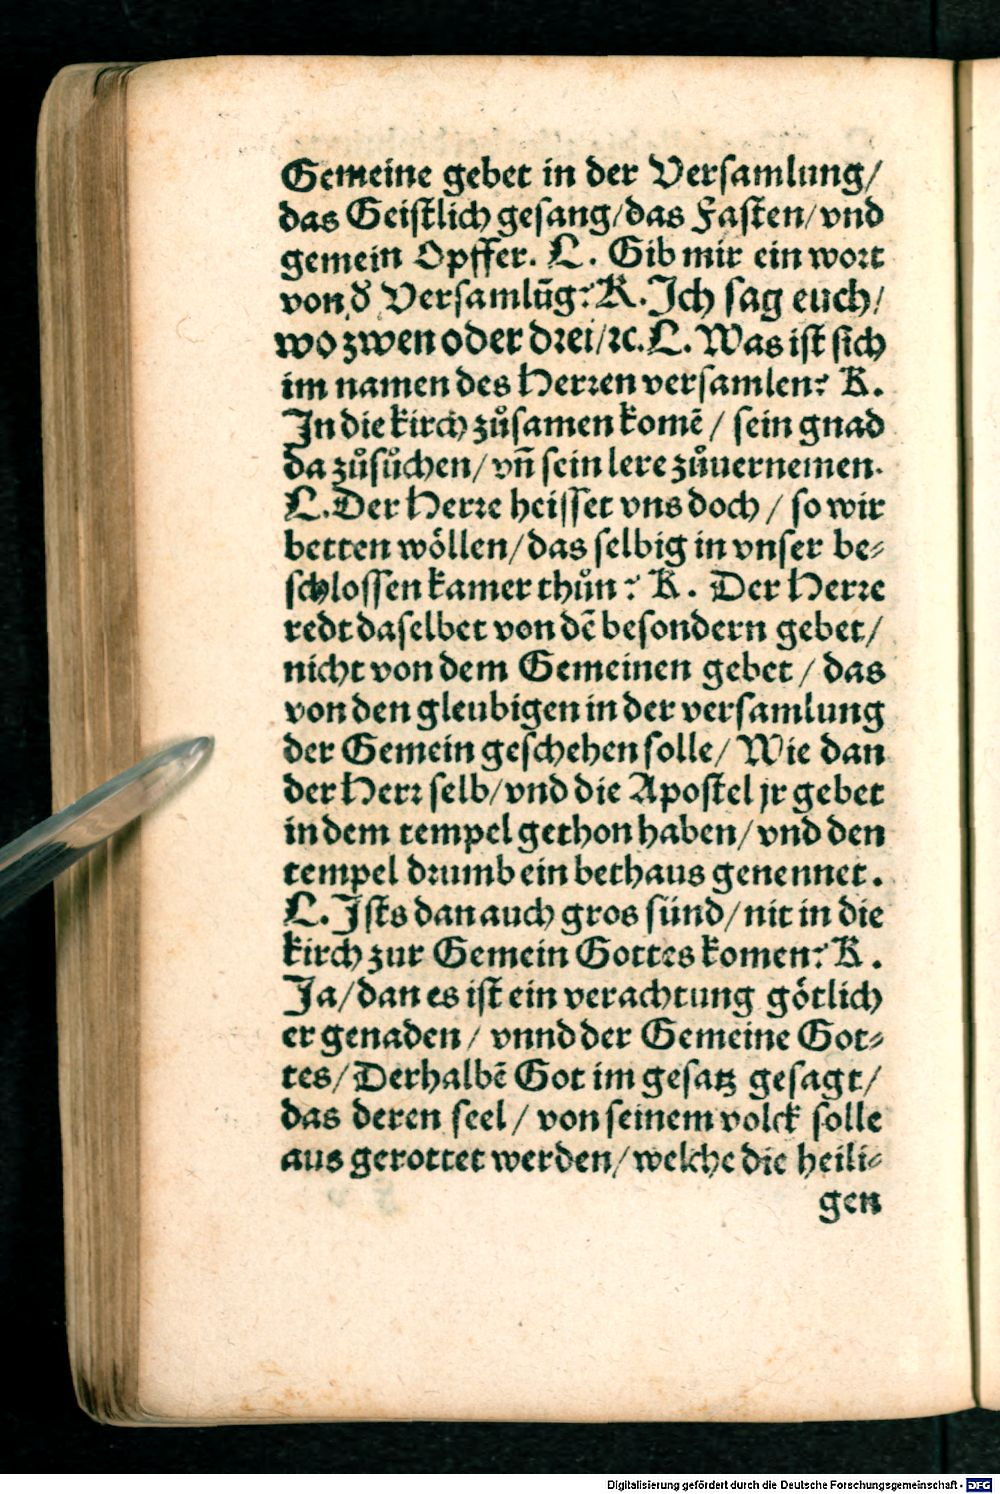 Gemeine gebet in der Versamlung/
das Geistlich gesang/das Fasten/vnd
gemein Opffer. L. Gib mir ein wort
von d̕ Versamlūg? K. Ich sag euch/
wo zwen oder drei/ꝛc. L. Was ist sich
im namen des Herren versamlen? K.
In die kirch zůsamen komē / sein gnad
da zůsůchen/ vñ sein lere zůuernemen.
L. Der Herre heisset vns doch / so wir
betten wöllen/das selbig in vnser be-
schlossen kamer thůn? K. Der Herre
redt daselbet von dē besondern gebet/
nicht von dem Gemeinen gebet / das
von den gleubigen in der versamlung
der Gemein geschehen solle/ Wie dan
der Herr selb/vnd die Apostel jr gebet
in dem tempel gethon haben/ vnd den
tempel drumb ein bethaus genennet.
L. Ists dan auch gros sünd/ nit in die
kirch zur Gemein Gottes komen? K.
Ja/dan es ist ein verachtung götlich
er genaden / vnnd der Gemeine Got-
tes/ Derhalbē Got im gesatz gesagt/
das deren seel / von seinem volck solle
aus gerottet werden/ welche die heili-
gen
Digitalisierung gefördert durch die Deutsche Forschungsgemeinschaft - DFG